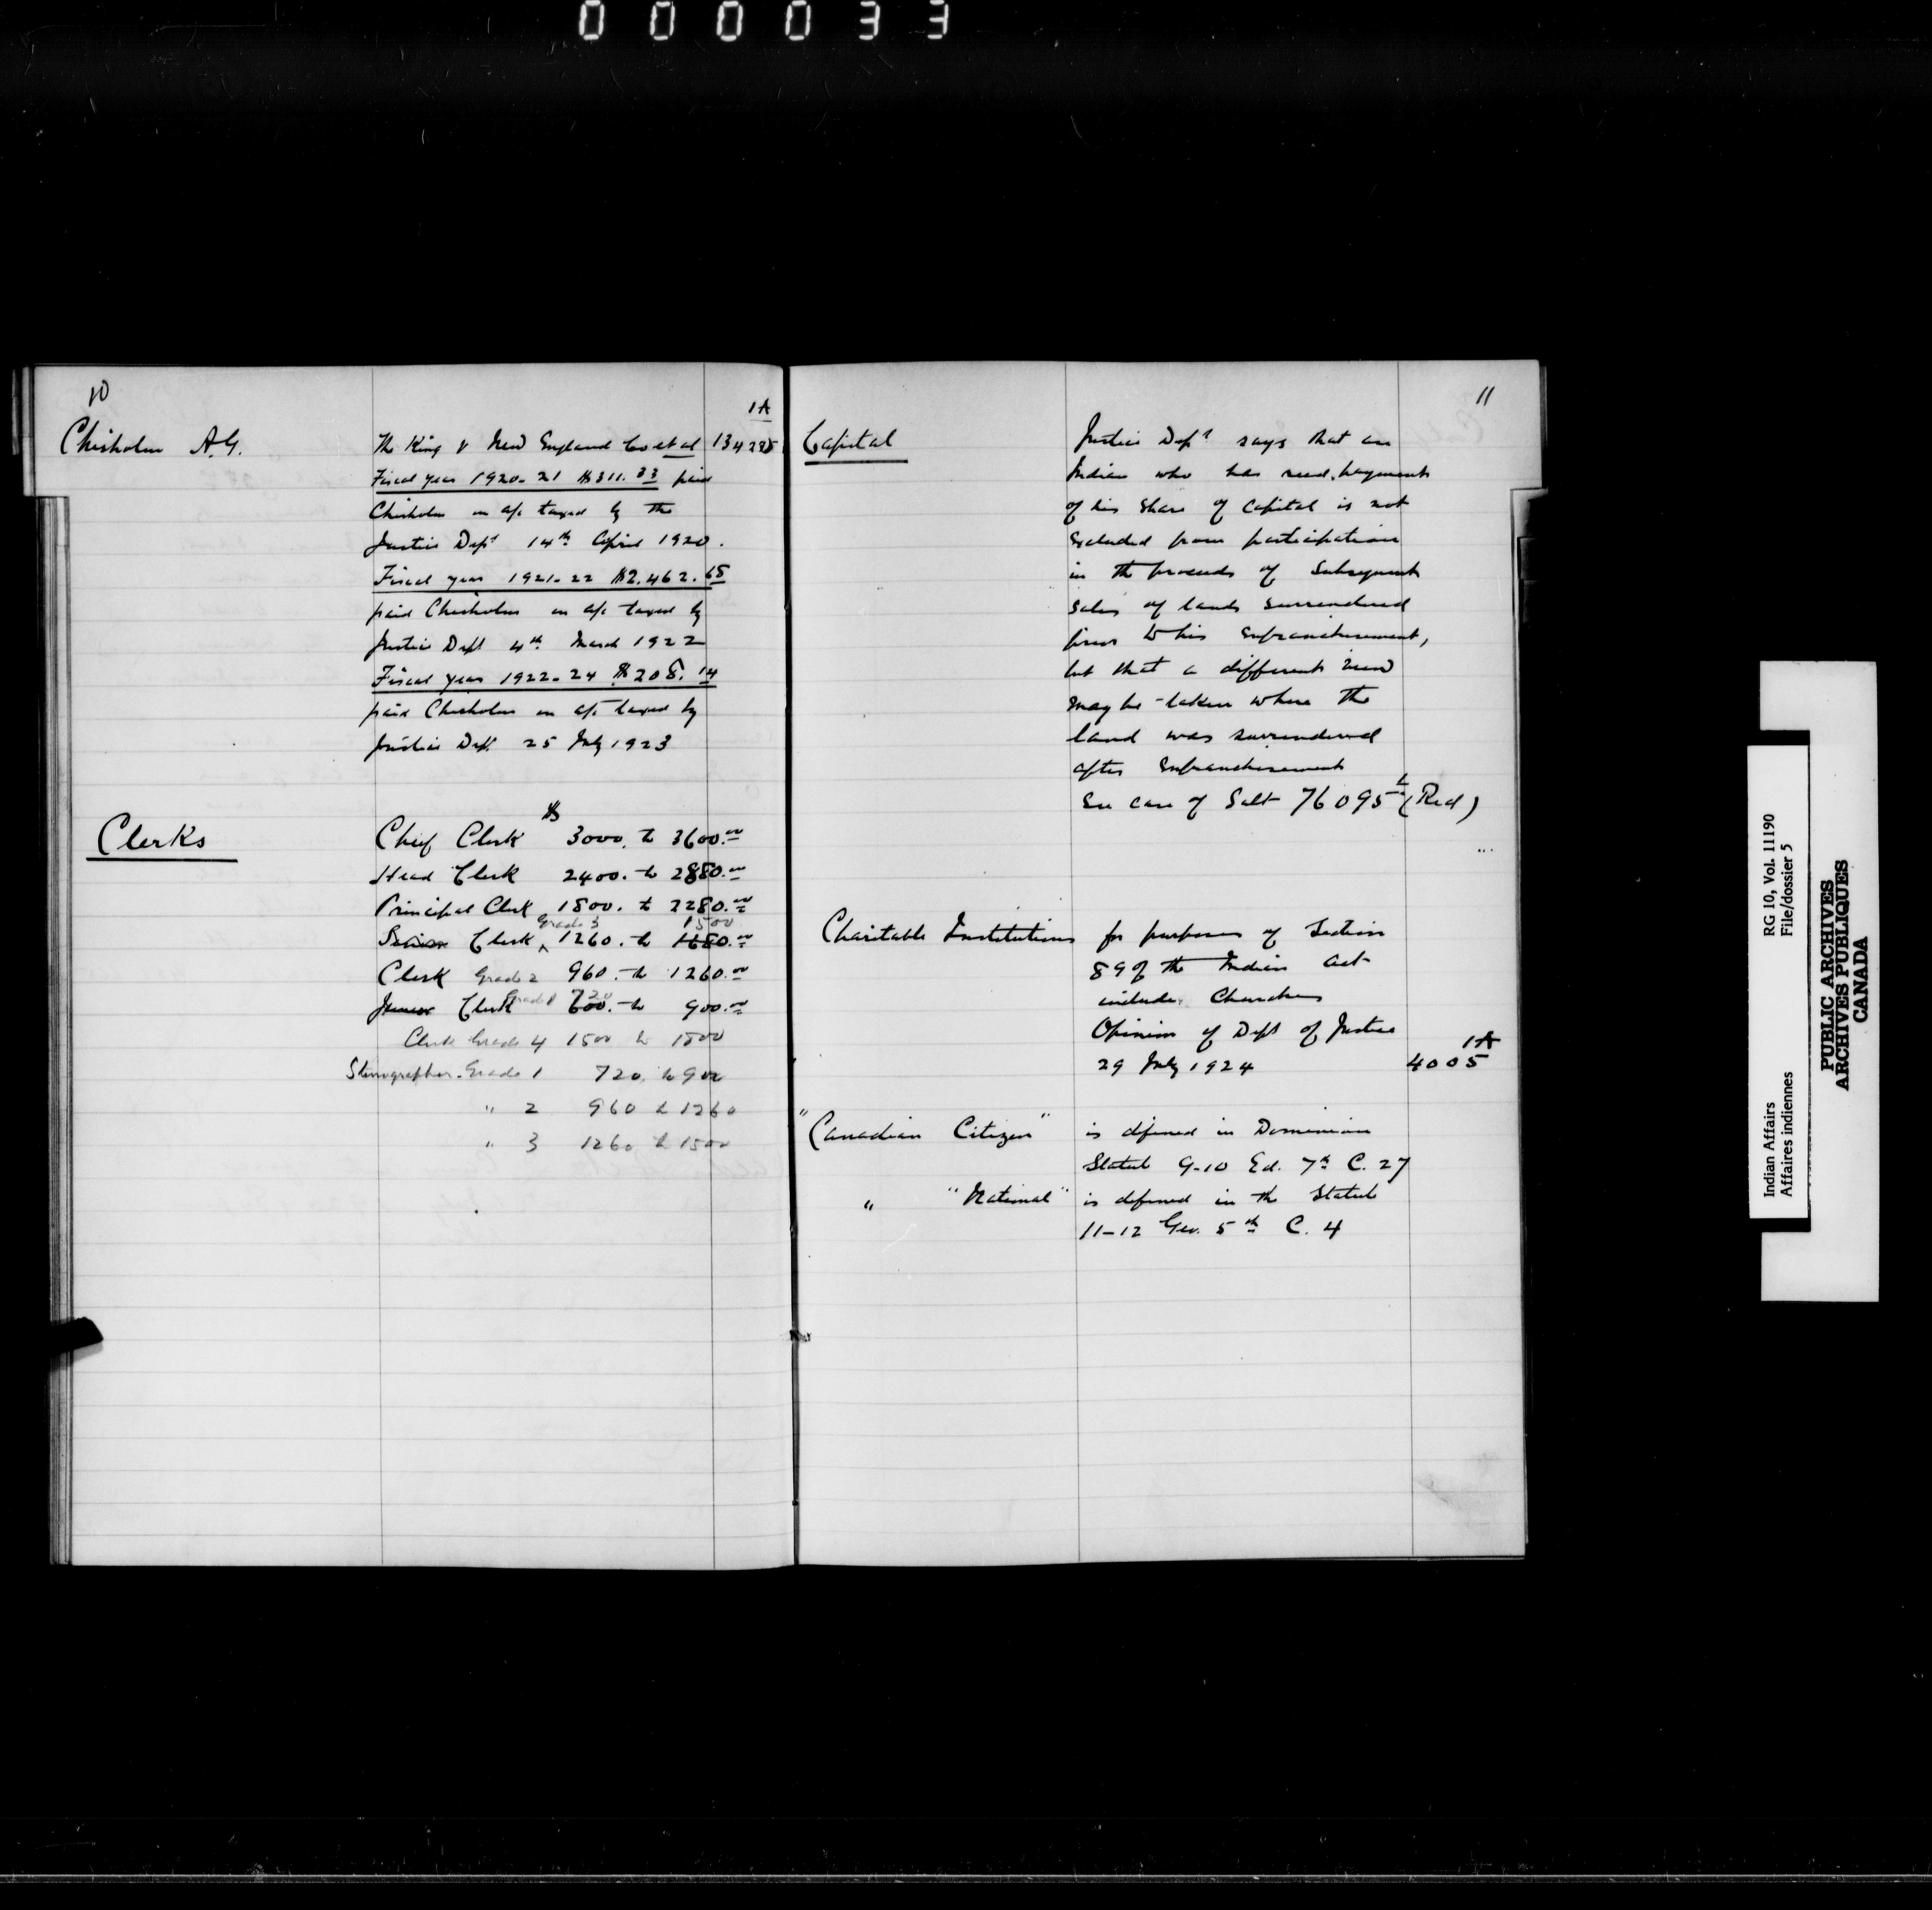 000033
10
1A
Chisholm A.G. The King v New England Co et al 134235
Fiscal year 1920-21 $311.33 paid
Chisholm on a/c taxed by the
Justice Dept 14th April 1920.
Fiscal year 1921-22 $2.462.65
paid Chisholm on a/c taxed by
Justice Dept 4th March 1922
Fiscal year 1922-24 $208.14
paid Chisholm on a/c taxed by
Justice Dept 25 July 1923
$
Clerks Chief Clerk 3000. to 3600.00
Head Clerk 2400. to 2880.00
Principal Clerk 1800. to 2280.00
Grade 3 1500
Senior Clerk 1260. to 1680.00
Clerk Grade 2 960. to 1260.00
Grade 1 720
Junior Clerk 600. to 900.00
Clerk Grade 4 1500 to 1800
Stenographer. Grade 1 720. to 900
" 2 960 to 1260
" 3 1260 to 1500
11
Capital Justice Dept says that an
Indian who has recd. payment
of his share of capital is not
excluded from participation
in the proceeds of subsequent
sales of lands surrendered
prior to his enfranchisement,
but that a different view
may be taken where the
land was surrendered
after enfranchisement
See case of Salt 76095 (Red)
Charitable Institutions for purposes of Section
89 of the Indian Act
include Churches
Opinion of Dept of Justice
1A
29 July 1924 4005
"Canadian Citizen" is defined in Dominion
Statute 9-10 Ed. 7th C. 27
" "National" is defined in the Statute
11-12 Geo. 5th C. 4
Indian Affairs RG 10, Vol. 11190
Affaires indiennes File/dossier 5
PUBLIC ARCHIVES
ARCHIVES PUBLIQUES
CANADA